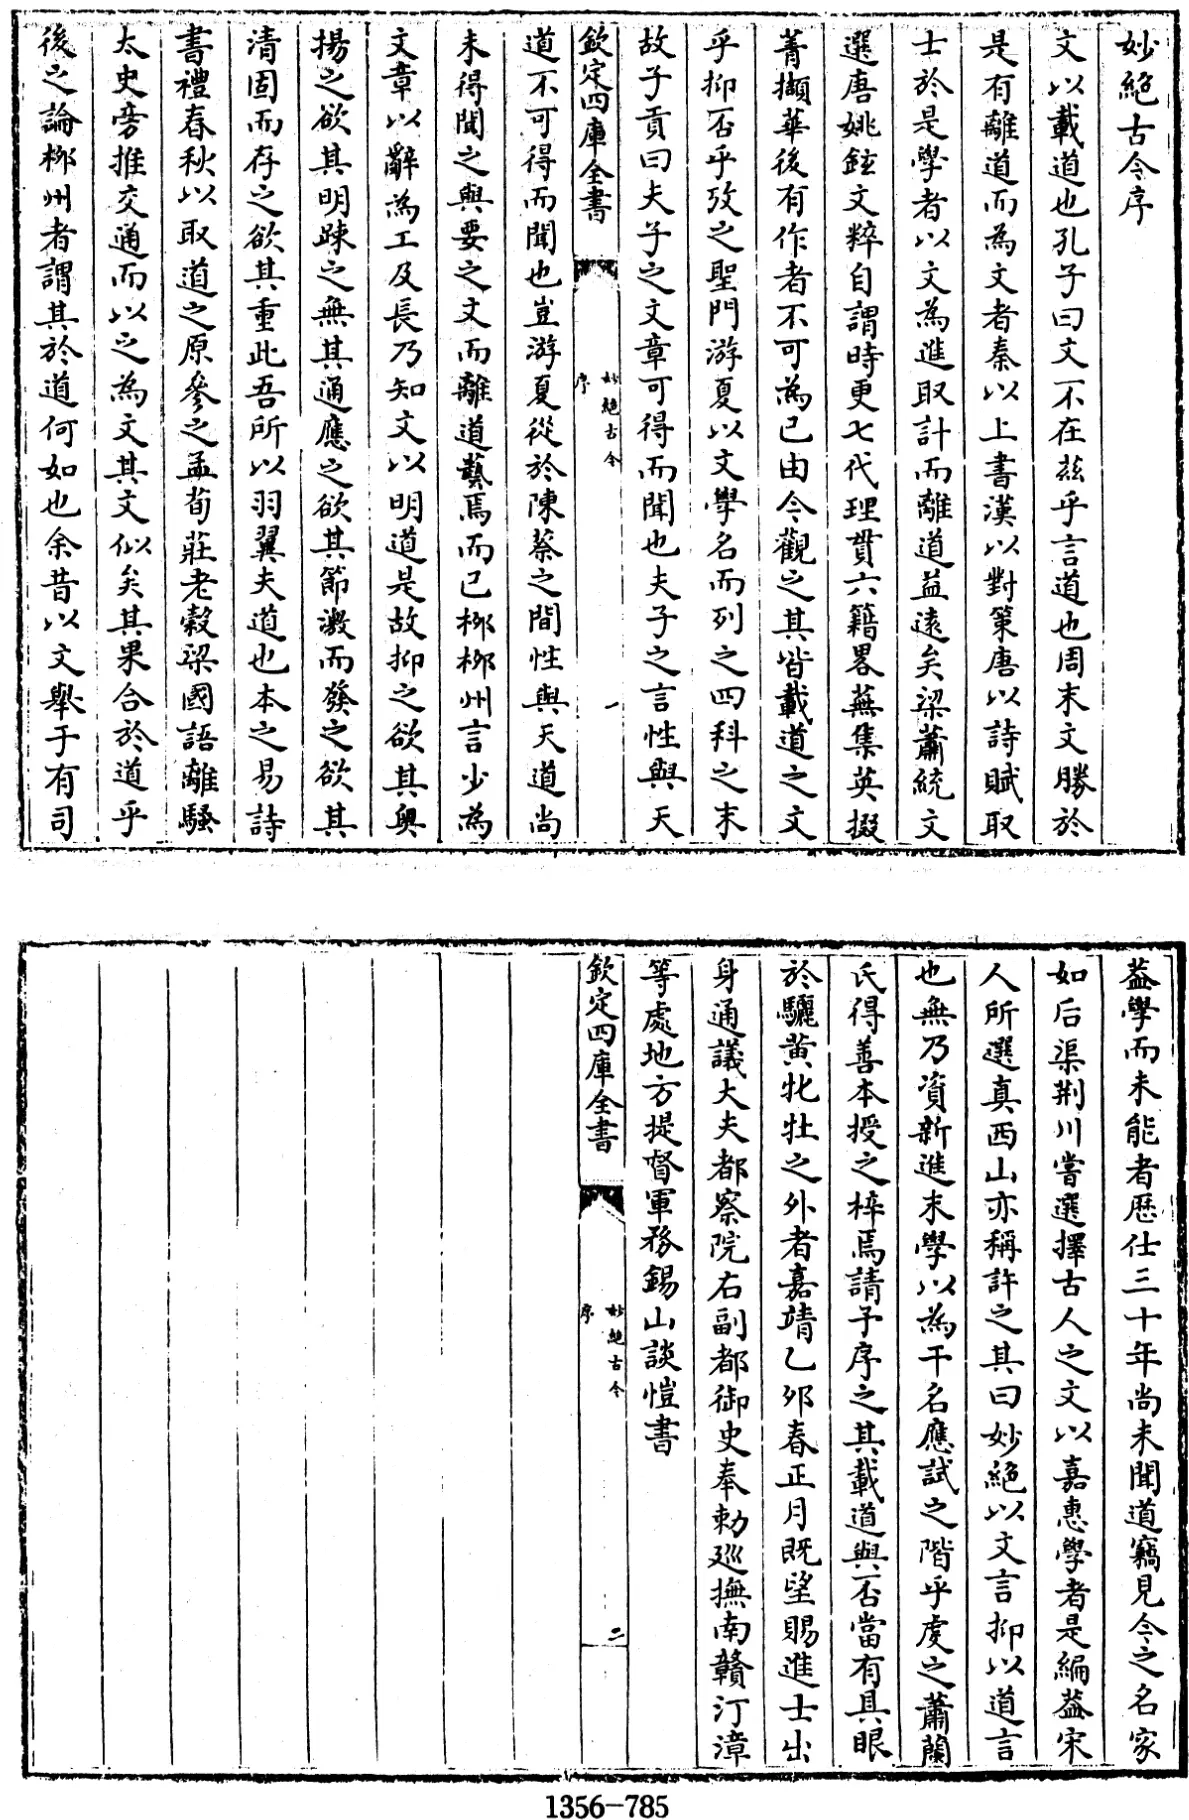 妙絶古今序
文以載道也孔子曰文不在兹乎言道也周末文勝於
是有離道而為文者秦以上書漢以對策唐以詩賦取
士於是學者以文為進取計而離道益逺矣梁蕭統文
選唐姚鉉文粹自謂時更七代理貫六籍畧蕪集英掇
菁擷華後有作者不可為已由今觀之其皆載道之文
乎抑否乎攷之聖門游夏以文學名而列之四科之末
故子貢曰夫子之文章可得而聞也夫子之言性與天
欽定四庫全書
妙絶古今
序
一
道不可得而聞也豈游夏從於陳蔡之間性與天道尚
未得聞之與要之文而離道藝焉而已栁栁州言少為
文章以辭為工及長乃知文以明道是故抑之欲其奥
揚之欲其明踈之無其通應之欲其節激而發之欲其
清固而存之欲其重此吾所以羽翼夫道也本之易詩
書禮春秋以取道之原參之孟荀莊老穀梁國語離騷
太史旁推交通而以之為文其文似矣其果合於道乎
後之論栁州者謂其於道何如也余昔以文舉于有司
葢學而未能者歴仕三十年尚未聞道竊見今之名家
如后渠荆川嘗選擇古人之文以嘉惠學者是編葢宋
人所選真西山亦稱許之其曰妙絶以文言抑以道言
也無乃資新進末學以為干名應試之階乎虔之蕭蘭
氏得善本授之梓焉請予序之其載道與否當有具眼
於驪黄牝牡之外者嘉靖乙夘春正月既望賜進士出
身通議大夫都察院右副都御史奉勅廵撫南贛汀漳
等處地方提督軍務錫山談愷書
欽定四庫全書
妙絶古今
序
二
1356-785